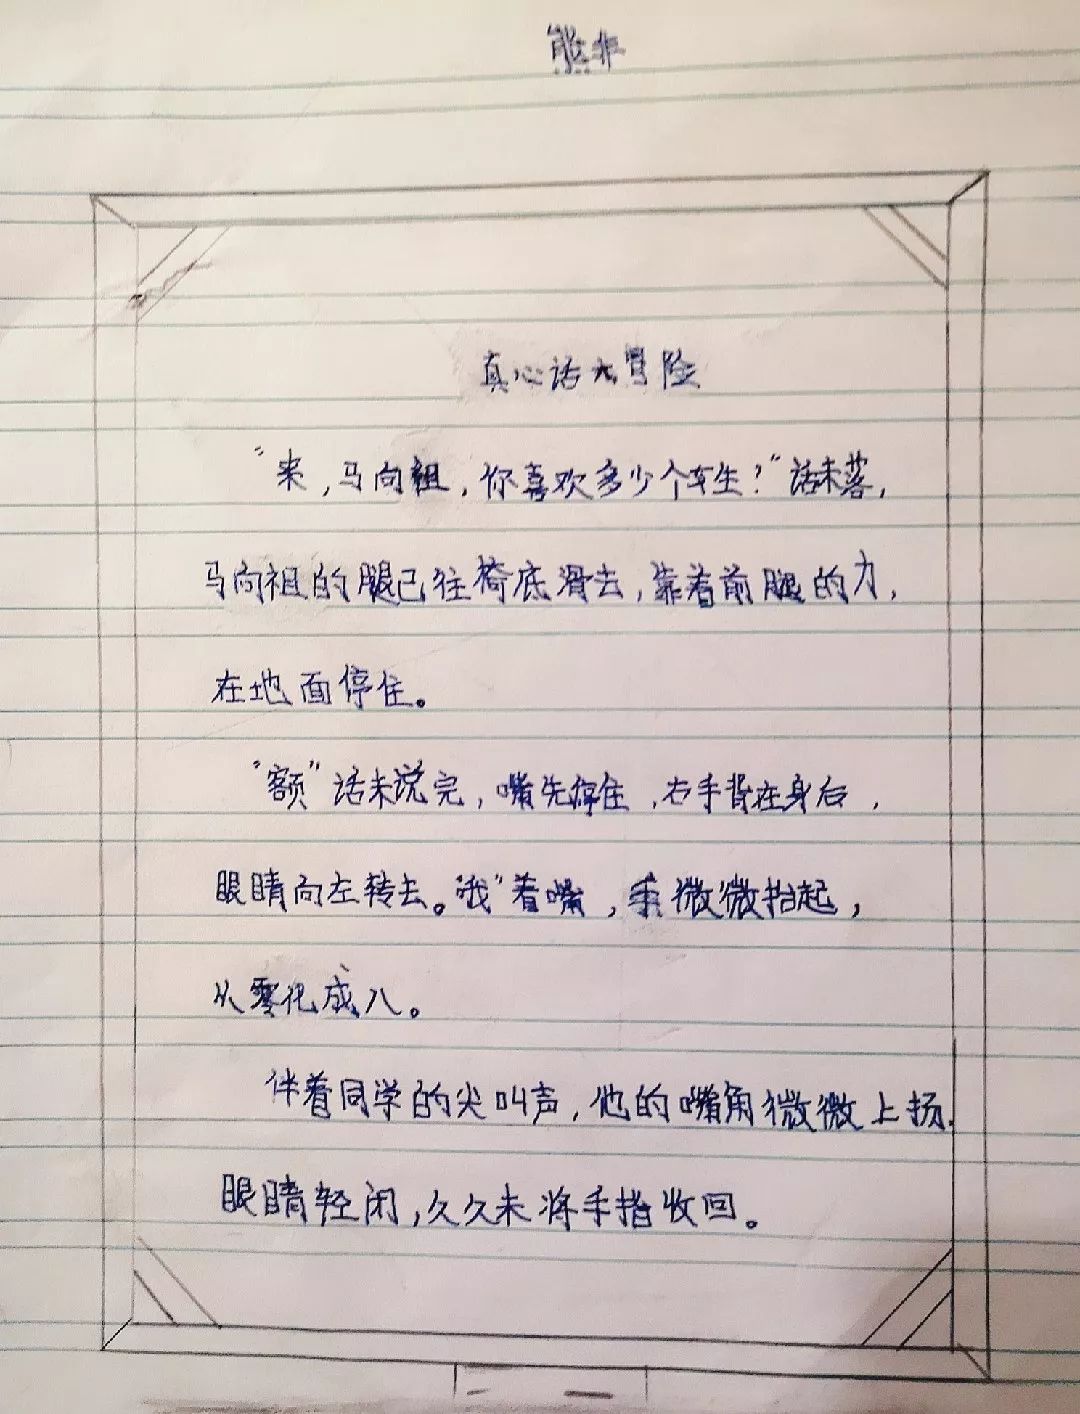 熊非
真心话大冒险
“来,马向祖,你喜欢多少个女生?”话未落,
马向祖的腿已往椅底滑去,靠着前腿的力,
在地面停住。
“额”话未说完,嘴先停住,右手背在身后,
眼睛向左转去。“哦”着嘴,手微微抬起,
从零化成八。
伴着同学的尖叫声,他的嘴角微微上扬.
眼睛轻闭,久久未将手指收回。